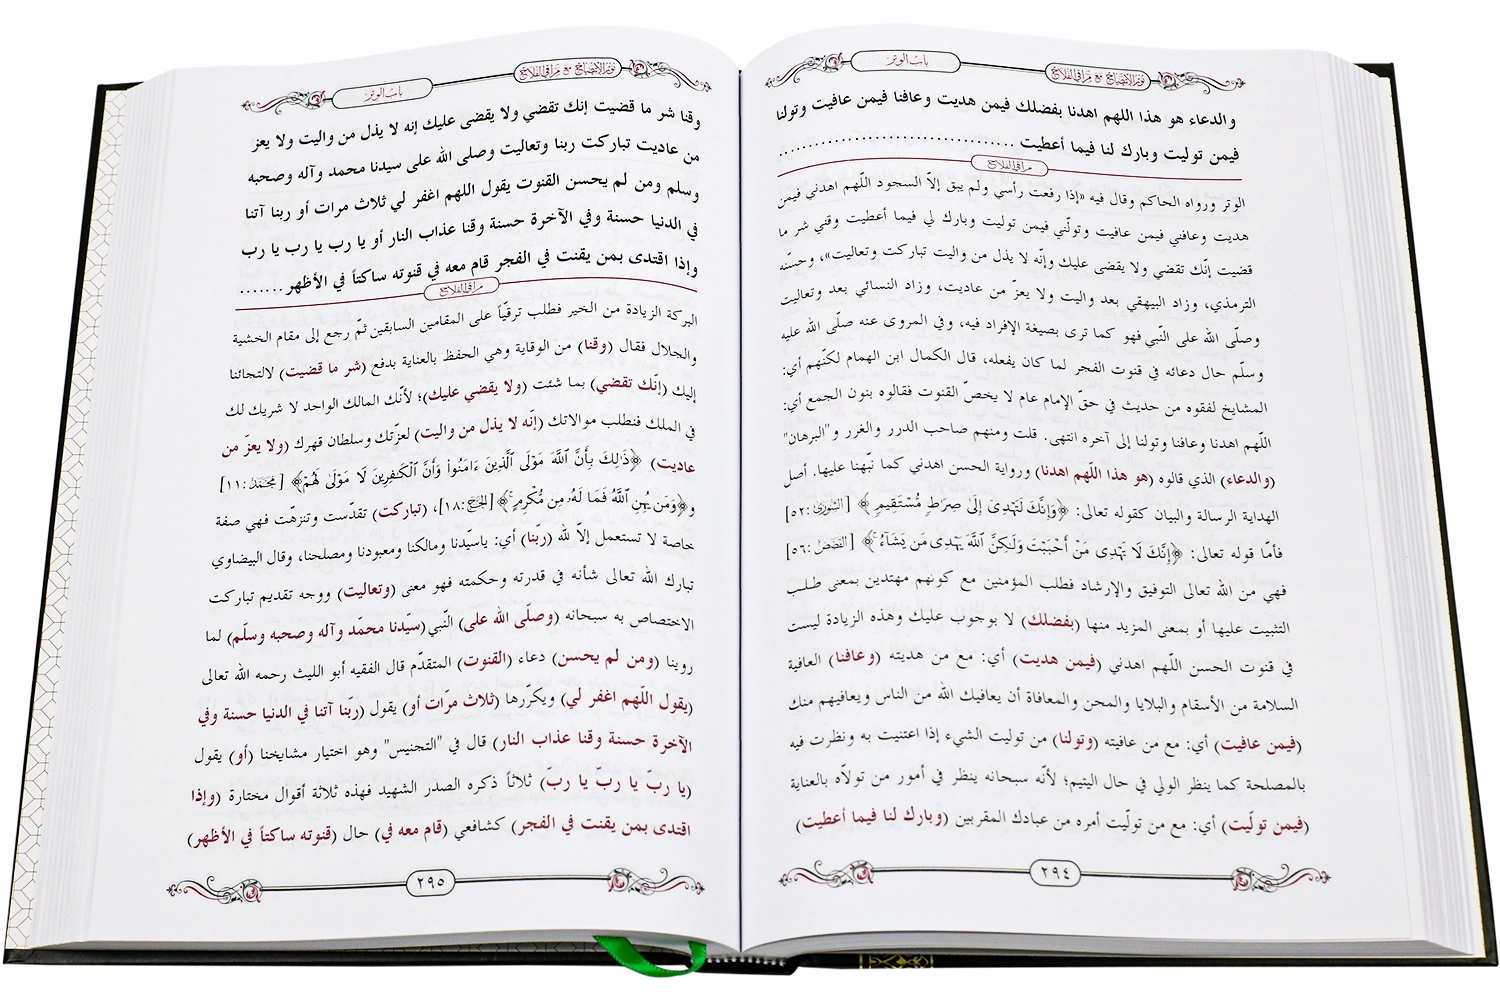 باب الوتر
نور الإيضاح مع مراقي الفلاح
والدعاء هو هذا اللهم اهدنا بفضلك فيمن هديت وعافنا فيمن عافيت وتولنا
فيمن توليت وبارك لنا فيما أعطيت ......................................
مراقي الفلاح
الوتر ورواه الحاكم وقال فيه «إذا رفعت رأسي ولم يبق إلاّ السجود اللّهم اهدني فيمن
هديت وعافني فيمن عافيت وتولّني فيمن توليت وبارك لي فيما أعطيت وقني شر ما
قضيت إنّك تقضي ولا يقضى عليك وإنّه لا يذل من واليت تباركت وتعاليت»، وحسّنه
الترمذي، وزاد البيهقي بعد واليت ولا يعزّ من عاديت، وزاد النسائي بعد وتعاليت
وصلّى الله على النّبي فهو كما ترى بصيغة الإفراد فيه، وفي المروى عنه صلّى الله عليه
وسلّم حال دعائه في قنوت الفجر لما كان يفعله، قال الكمال ابن الهمام لكنّهم أي:
المشايخ لفقوه من حديث في حقّ الإمام عام لا يخصّ القنوت فقالوه بنون الجمع أي:
اللّهم اهدنا وعافنا وتولنا إلى آخره انتهى. قلت ومنهم صاحب الدرر والغرر و"البرهان"
(والدعاء) الذي قالوه (هو هذا اللّهم اهدنا) ورواية الحسن اهدني كما نبّهنا عليها. أصل
الهداية الرسالة والبيان كقوله تعالى: ﴿وَإِنَّكَ لَتَهْدِىٓ إِلَىٰ صِرَاطٍ مُّسْتَقِيمٍ﴾ [الشورى:٥٢]
فأمّا قوله تعالى: ﴿إِنَّكَ لَا تَهْدِى مَنْ أَحْبَبْتَ وَلَٰكِنَّ ٱللَّهَ يَهْدِى مَن يَشَآءُ﴾ [القصص:٥٦]
فهي من الله تعالى التوفيق والإرشاد فطلب المؤمنين مع كونهم مهتدين بمعنى طلب
التثبيت عليها أو بمعنى المزيد منها (بفضلك) لا بوجوب عليك وهذه الزيادة ليست
في قنوت الحسن اللّهم اهدني (فيمن هديت) أي: مع من هديته (وعافنا) العافية
السلامة من الأسقام والبلايا والمحن والمعافاة أن يعافيك الله من الناس ويعافيهم منك
(فيمن عافيت) أي: مع من عافيته (وتولنا) من توليت الشيء إذا اعتنيت به ونظرت فيه
بالمصلحة كما ينظر الولي في حال اليتيم؛ لأنّه سبحانه ينظر في أمور من تولاّه بالعناية
(فيمن تولّيت) أي: مع من تولّيت أمره من عبادك المقربين (وبارك لنا فيما أعطيت)
٢٩٤
نور الإيضاح مع مراقي الفلاح
باب الوتر
وقنا شر ما قضيت إنك تقضي ولا يقضى عليك إنه لا يذل من واليت ولا يعز
من عاديت تباركت ربنا وتعاليت وصلى الله على سيدنا محمد وآله وصحبه
وسلم ومن لم يحسن القنوت يقول اللهم اغفر لي ثلاث مرات أو ربنا آتنا
في الدنيا حسنة وفي الآخرة حسنة وقنا عذاب النار أو يا رب يا رب يا رب
وإذا اقتدى بمن يقنت في الفجر قام معه في قنوته ساكتاً في الأظهر .......
مراقي الفلاح
البركة الزيادة من الخير فطلب ترقيّاً على المقامين السابقين ثمّ رجع إلى مقام الخشية
والجلال فقال (وقنا) من الوقاية وهي الحفظ بالعناية بدفع (شر ما قضيت) لالتجائنا
إليك (إنّك تقضي) بما شئت (ولا يقضي عليك)؛ لأنّك المالك الواحد لا شريك لك
في الملك فنطلب موالاتك (إنّه لا يذل من واليت) لعزّتك وسلطان قهرك (ولا يعزّ من
عاديت) ﴿ذَٰلِكَ بِأَنَّ ٱللَّهَ مَوْلَى ٱلَّذِينَ ءَامَنُوا۟ وَأَنَّ ٱلْكَٰفِرِينَ لَا مَوْلَىٰ لَهُمْ﴾ [محمد:١١]
و﴿وَمَن يُهِنِ ٱللَّهُ فَمَا لَهُۥ مِن مُّكْرِمٍ﴾ [الحج:١٨]، (تباركت) تقدّست وتنزهّت فهي صفة
خاصة لا تستعمل إلاّ لله (ربّنا) أي: ياسيّدنا ومالكنا ومعبودنا ومصلحنا، وقال البيضاوي
تبارك الله تعالى شأنه في قدرته وحكمته فهو معنى (وتعاليت) ووجه تقديم تباركت
الاختصاص به سبحانه (وصلّى الله على) النّبي (سيّدنا محمّد وآله وصحبه وسلّم) لما
روينا (ومن لم يحسن) دعاء (القنوت) المتقدّم قال الفقيه أبو الليث رحمه الله تعالى
(يقول اللّهم اغفر لي) ويكرّرها (ثلاث مرّات أو) يقول (ربّنا آتنا في الدنيا حسنة وفي
الآخرة حسنة وقنا عذاب النار) قال في "التجنيس" وهو اختيار مشايخنا (أو) يقول
(يا ربّ يا ربّ يا ربّ) ثلاثاً ذكره الصدر الشهيد فهذه ثلاثة أقوال مختارة (وإذا
اقتدى بمن يقنت في الفجر) كشافعي (قام معه في) حال (قنوته ساكتاً في الأظهر)
٢٩٥